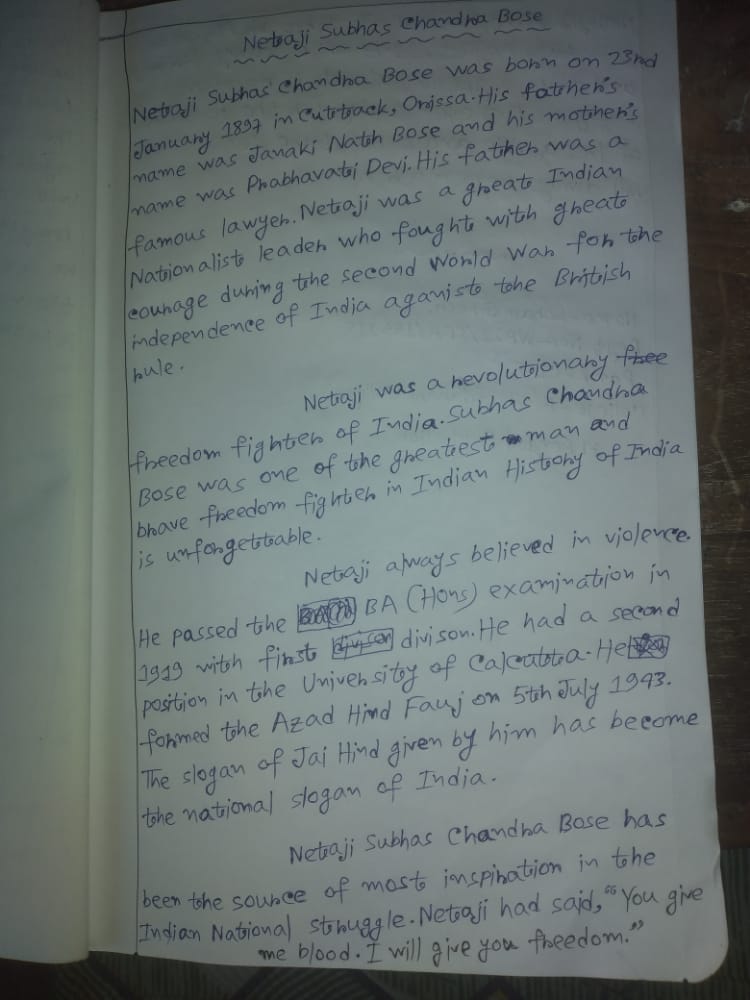 Netaji Subhas Chandra Bose
Netaji Subhas Chandra Bose was born on 23nd
January 1897 in Cuttrack, Orissa. His father's
name was Janaki Nath Bose and his mother's
name was Prabhavati Devi. His father was a
famous lawyer. Netaji was a great Indian
Nationalist leader who fought with great
courage during the second World War for the
independence of India aganist the British
rule.
Netaji was a revolutionary free
freedom fighter of India. Subhas Chandra
Bose was one of the greatest man and
brave freedom fighter in Indian History of India
is unforgettable.
Netaji always believed in violence.
He passed the BA (Hons) examination in
1919 with first divison divison. He had a second
position in the University of Calcutta. He
formed the Azad Hind Fauj on 5th July 1943.
The slogan of Jai Hind given by him has become
the national slogan of India.
Netaji Subhas Chandra Bose has
been the source of most inspiration in the
Indian National struggle. Netaji had said, "You give
me blood. I will give you freedom."